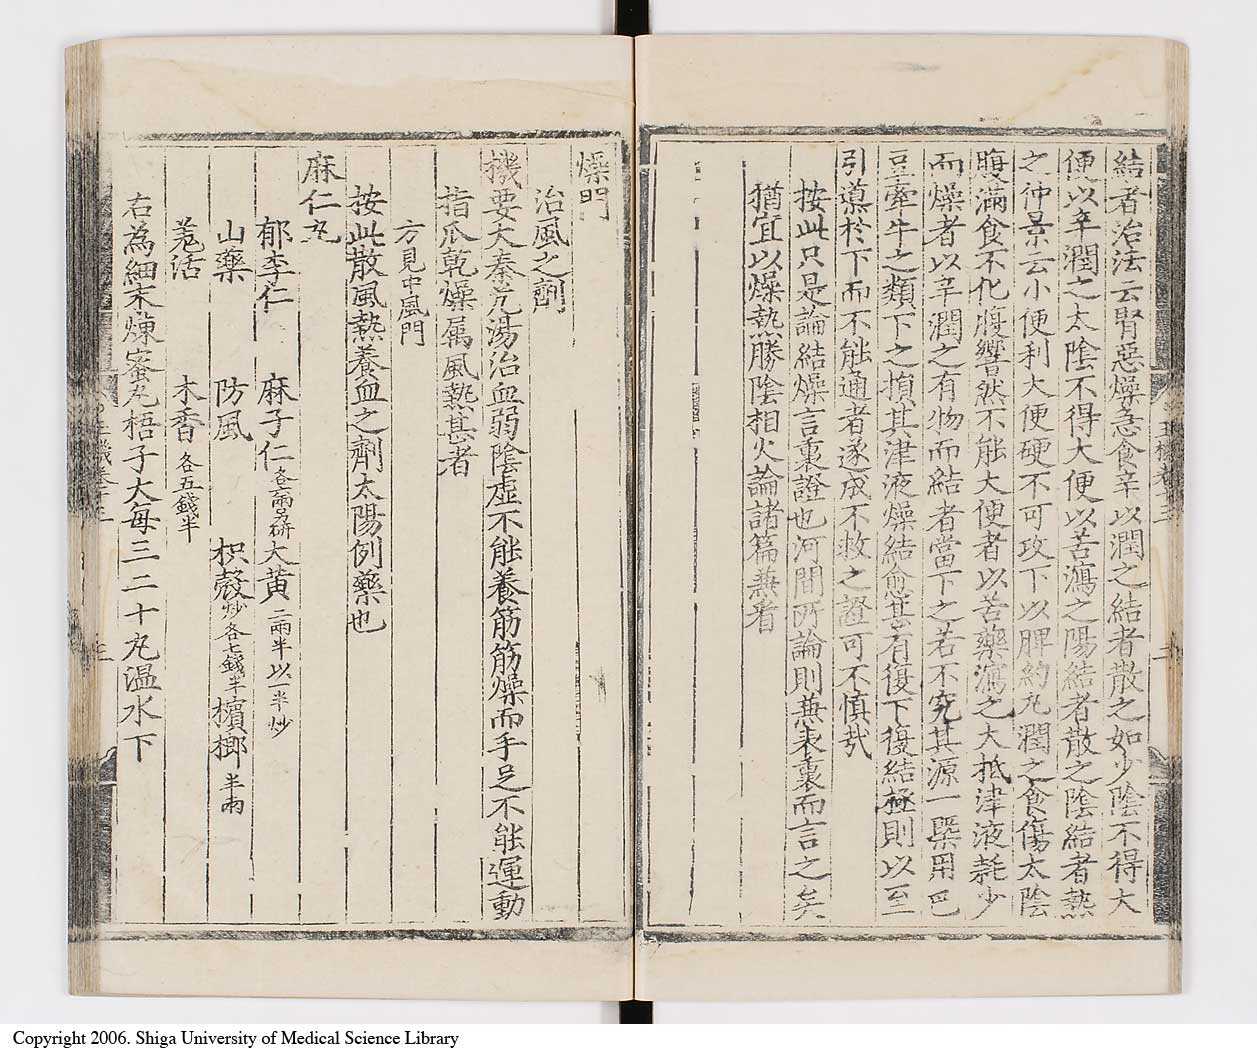 結者治法云腎惡燥急食辛以潤之結者散之如少陰不得大
便以辛潤之太陰不得大便以苦瀉之陽結者散之陰結者熱
之仲景云小便利大便硬不可攻下以脾約丸潤之食傷太陰
腹滿食不化腹響然不能大便者以苦藥瀉之大抵津液耗少
而燥者以辛潤之有物而結者當下之若不究其源一槩用巴
豆牽牛之類下之損其津液燥結愈甚有復下復結極則以至
引導於下而不能通者遂成不救之證可不慎哉
按此只是論結燥言裏證也河間所論則兼表裏而言之矣
猶宜以燥熱勝陰相火論諸篇兼看
燥門
治風之劑
機要大秦艽湯治血弱陰虛不能養筋筋燥而手足不能運動
指爪乾燥属風熱甚者
方見中風門
按此散風熱養血之劑太陽例藥也
麻仁丸
郁李仁 麻子仁各二兩另研 大黃二兩半以一半炒
山藥 防風 枳殼炒各七錢半 檳榔半兩
羗活 木香各五錢半
右為細末煉蜜丸梧子大每三二十丸温水下
Copyright 2006. Shiga University of Medical Science Library